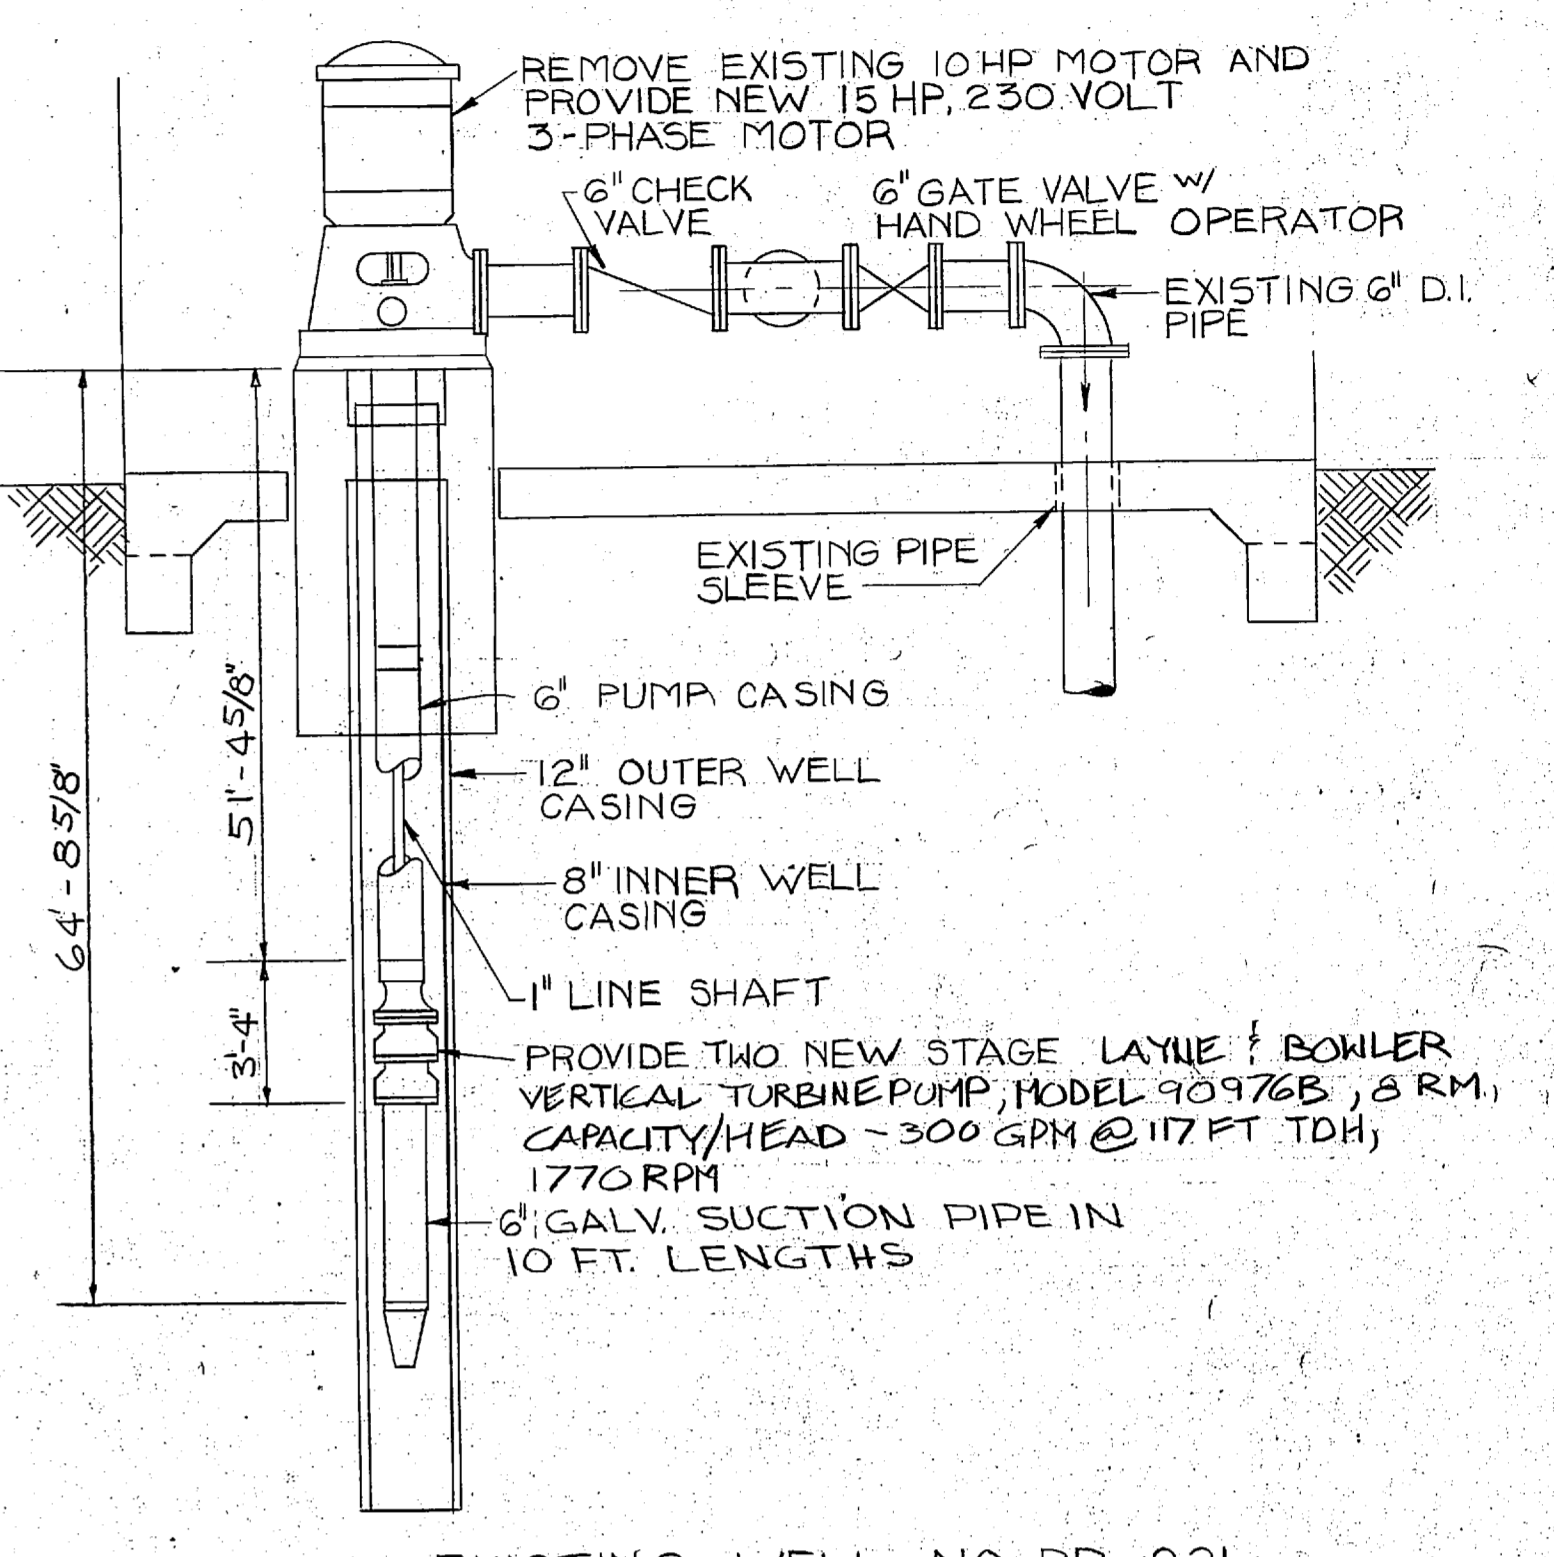 REMOVE EXISTING 10 HP MOTOR AND
PROVIDE NEW 15 HP, 230 VOLT
3-PHASE MOTOR
6" CHECK
VALVE
6" GATE VALVE W/
HAND WHEEL OPERATOR
EXISTING 6" D.I.
PIPE
EXISTING PIPE
SLEEVE
6" PUMP CASING
12" OUTER WELL
CASING
8" INNER WELL
CASING
1" LINE SHAFT
51'-4 5/8"
64'-8 5/8"
3'-4"
PROVIDE TWO NEW STAGE LAYNE & BOWLER
VERTICAL TURBINE PUMP, MODEL 90976B, 8 RM,
CAPACITY/HEAD - 300 GPM @ 117 FT TDH,
1770 RPM
6" GALV. SUCTION PIPE IN
10 FT. LENGTHS
EXISTING WELL NO.